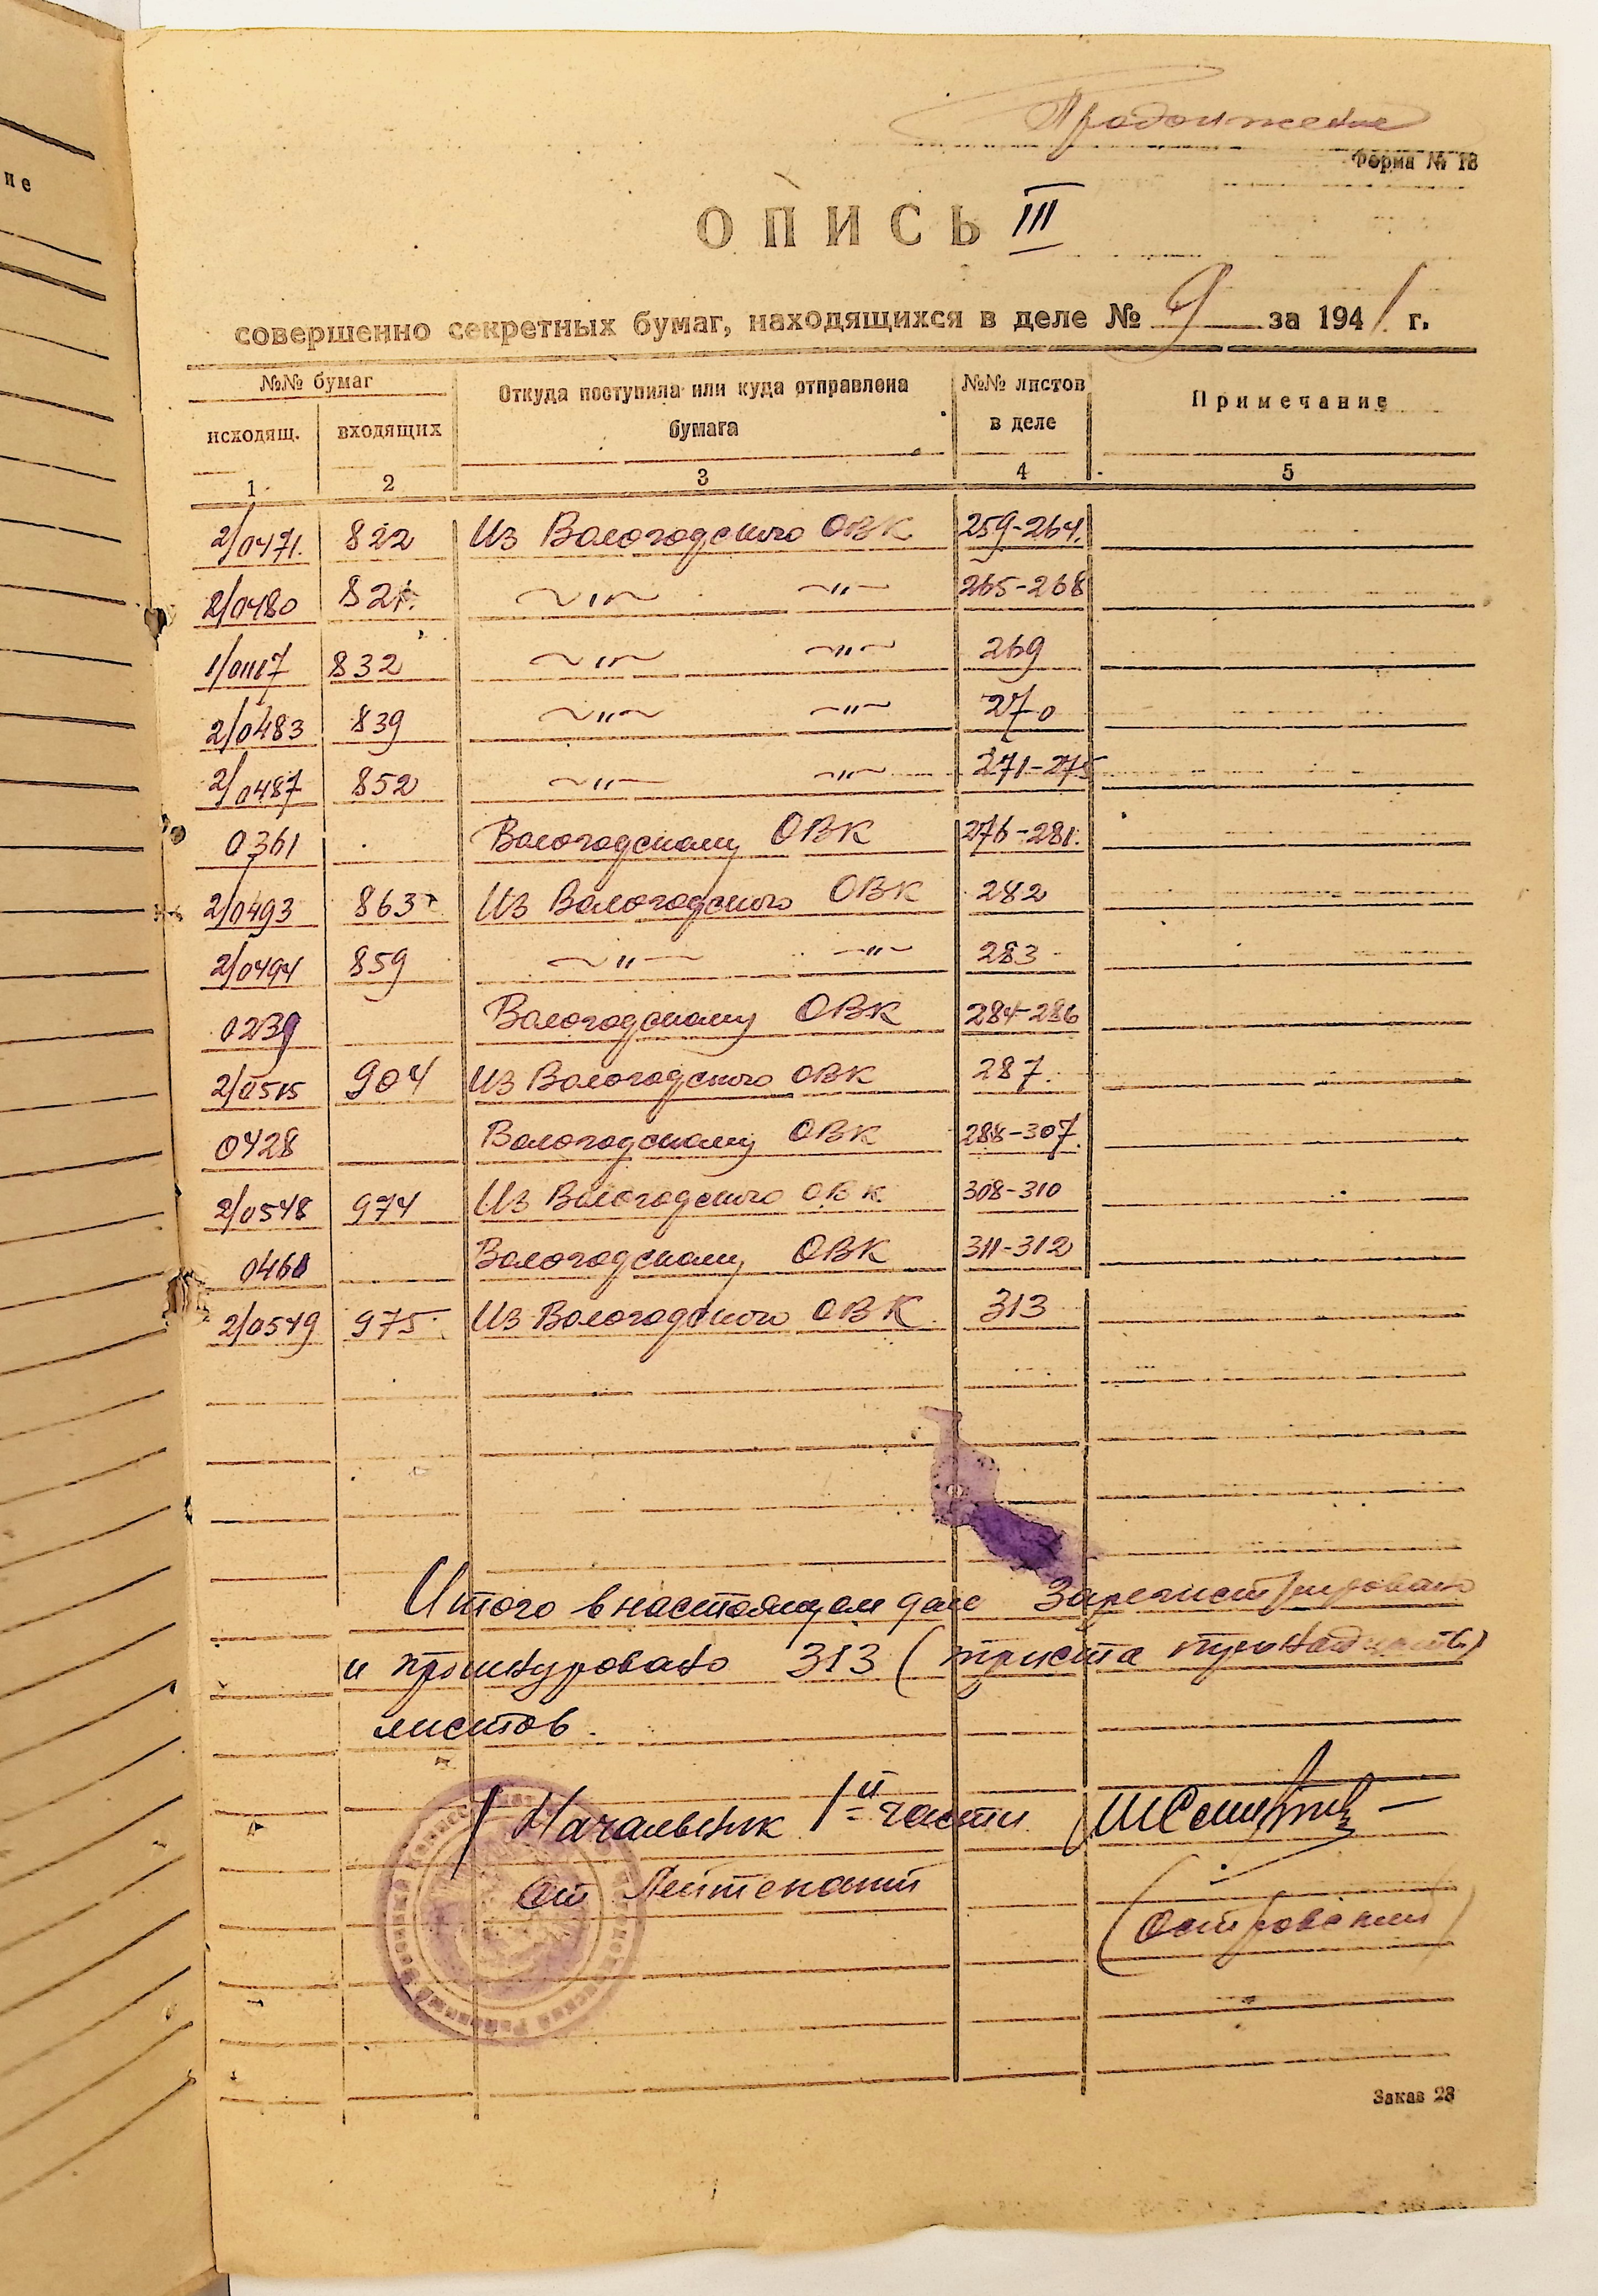 не
Продолжение
Форма № 18
ОПИСЬ III
совершенно секретных бумаг, находящихся в деле № 9 за 1941 г.
№№ бумаг
исходящ. входящих
Откуда поступила или куда отправлена
бумага
№№ листов
в деле
Примечание
1 2 3 4 5
2/0471. 822 Из Вологодского ОВК 259-264.
2/0480 821. ~"~ ~"~ 265-268
1/01117 832 ~"~ ~"~ 269
2/0483 839 ~"~ ~"~ 270
2/0487 852 ~"~ ~"~ 271-275
0361 Вологодскому ОВК 276-281.
2/0493 863 Из Вологодского ОВК 282
2/0494 859 ~"~ ~"~ 283
0239 Вологодскому ОВК 284-286
2/0515 904 Из Вологодского ОВК 287.
0428 Вологодскому ОВК 288-307.
2/0548 974 Из Вологодского ОВК 308-310
0460 Вологодскому ОВК 311-312
2/0549 975 Из Вологодского ОВК 313
Итого в настоящем деле зарегистрировано
и прошнуровано 313 (триста тринадцать)
листов.
Начальник 1й части
ст Лейтенант
(Островский)
Заказ 23